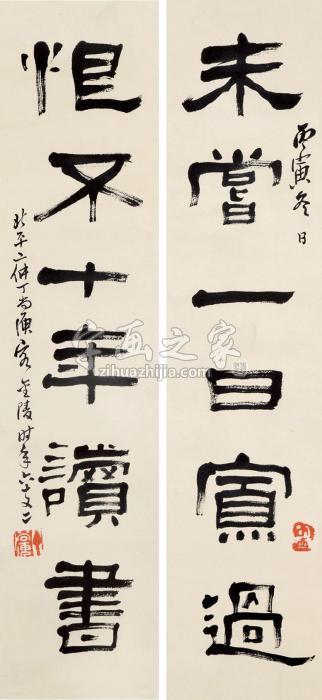 未嘗一日寡過
丙寅冬日
恨不十年讀書
北平二休丁尚庾客金陵时年六十又二
字画之家
zihuazhijia.com